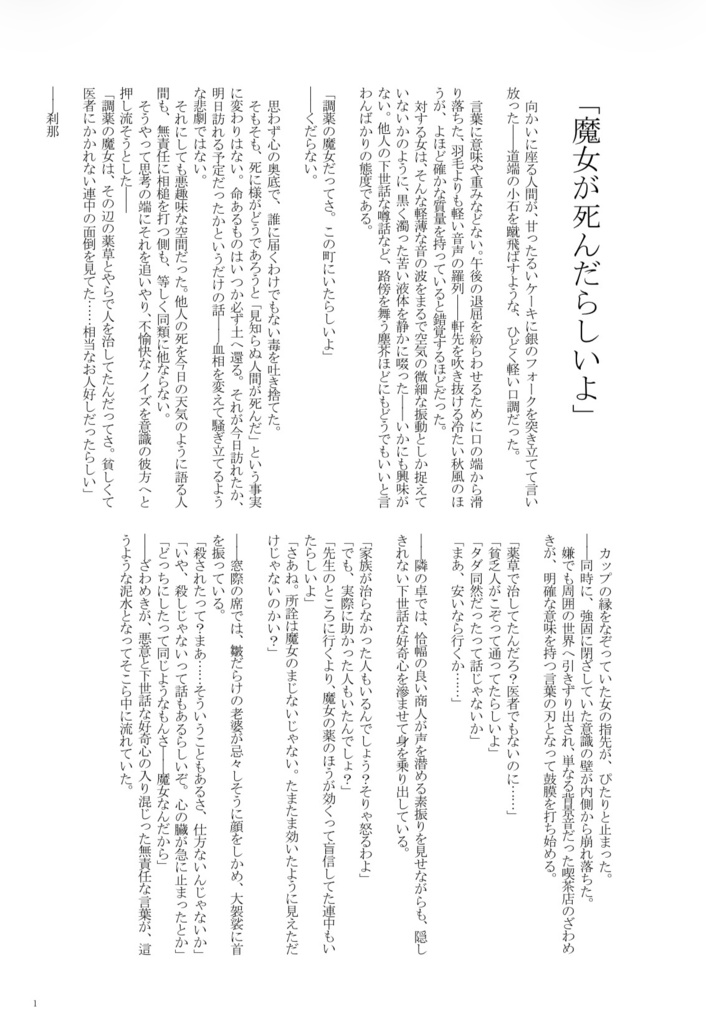 「魔女が死んだらしいよ」
向かいに座る人間が、甘ったるいケーキに銀のフォークを突き立てて言い
放った――道端の小石を蹴飛ばすような、ひどく軽い口調だった。
言葉に意味や重みなどない。午後の退屈を紛らわせるために口の端から滑
り落ちた、羽毛よりも軽い音声の羅列――軒先を吹き抜ける冷たい秋風のほ
うが、よほど確かな質量を持っていると錯覚するほどだった。
対する女は、そんな軽薄な音の波をまるで空気の微細な振動としか捉えて
いないかのように、黒く濁った苦い液体を静かに啜った――いかにも興味が
ない。他人の下世話な噂話など、路傍を舞う塵芥ほどにもどうでもいいと言
わんばかりの態度である。
「調薬の魔女だってさ。この町にいたらしいよ」
――くだらない。
思わず心の奥底で、誰に届くわけでもない毒を吐き捨てた。
そもそも、死に様がどうであろうと「見知らぬ人間が死んだ」という事実
に変わりはない。命あるものはいつか必ず土へ還る。それが今日訪れたか、
明日訪れる予定だったかというだけの話――血相を変えて騒ぎ立てるよう
な悲劇ではない。
それにしても悪趣味な空間だった。他人の死を今日の天気のように語る人
間も、無責任に相槌を打つ側も、等しく同類に他ならない。
そうやって思考の端にそれを追いやり、不愉快なノイズを意識の彼方へと
押し流そうとした――
「調薬の魔女は、その辺の薬草とやらで人を治してたんだってさ。貧しくて
医者にかかれない連中の面倒を見てた……相当なお人好しだったらしい」
――刹那
カップの縁をなぞっていた女の指先が、ぴたりと止まった。
――同時に、強固に閉ざしていた意識の壁が内側から崩れ落ちた。
嫌でも周囲の世界へ引きずり出され、単なる背景音だった喫茶店のざわめ
きが、明確な意味を持つ言葉の刃となって鼓膜を打ち始める。
「薬草で治してたんだろ？医者でもないのに……」
「貧乏人がこぞって通ってたらしいよ」
「タダ同然だったって話じゃないか」
「まあ、安いなら行くか……」
――隣の卓では、恰幅の良い商人が声を潜める素振りを見せながらも、隠し
きれない下世話な好奇心を滲ませて身を乗り出している。
「家族が治らなかった人もいるんでしょう？そりゃ怒るわよ」
「でも、実際に助かった人もいたんでしょ？」
「先生のところに行くより、魔女の薬のほうが効くって盲信してた連中もい
たらしいよ」
「さあね。所詮は魔女のまじないじゃない。たまたま効いたように見えただ
けじゃないのかい？」
――窓際の席では、皺だらけの老婆が忌々しそうに顔をしかめ、大袈裟に首
を振っている。
「殺されたって？まあ……そういうこともあるさ、仕方ないんじゃないか」
「いや、殺しじゃないって話もあるらしいぞ。心の臓が急に止まったとか」
「どっちにしたって同じようなもんさ――魔女なんだから」
――ざわめきが、悪意と下世話な好奇心の入り混じった無責任な言葉が、這
うような泥水となってそこら中に流れていた。
1